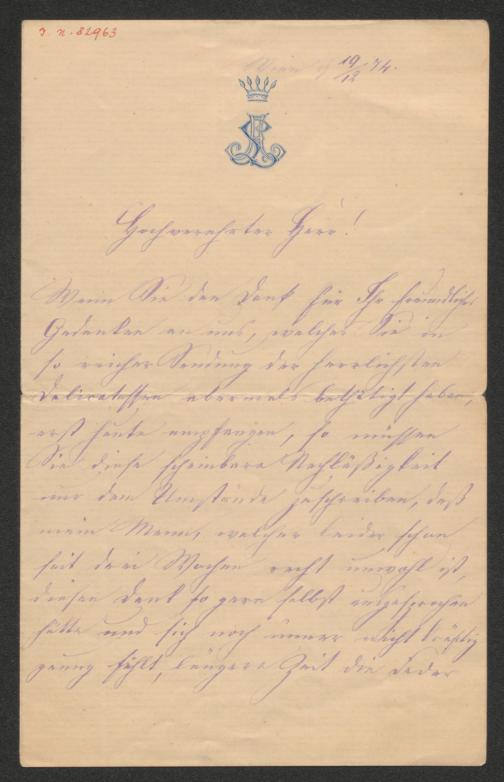 I. N. 82963
Wien 19/12 74.
Hochverehrter Herr!
Wenn Sie den Dank für Ihr freundliches
Gedenken an uns, welches Sie in
so reicher Sendung der herrlichsten
Delicatessen abermals bethätigt haben,
erst heute empfangen, so müssen
Sie diese scheinbare Nachläßigkeit
nur dem Umstande zuschreiben, daß
mein Mann, welcher leider schon
seit drei Wochen recht unwohl ist,
diesen Dank so gern selbst ausgesprochen
hätte und sich noch immer nicht kräftig
genug fühlt, längere Zeit die Feder